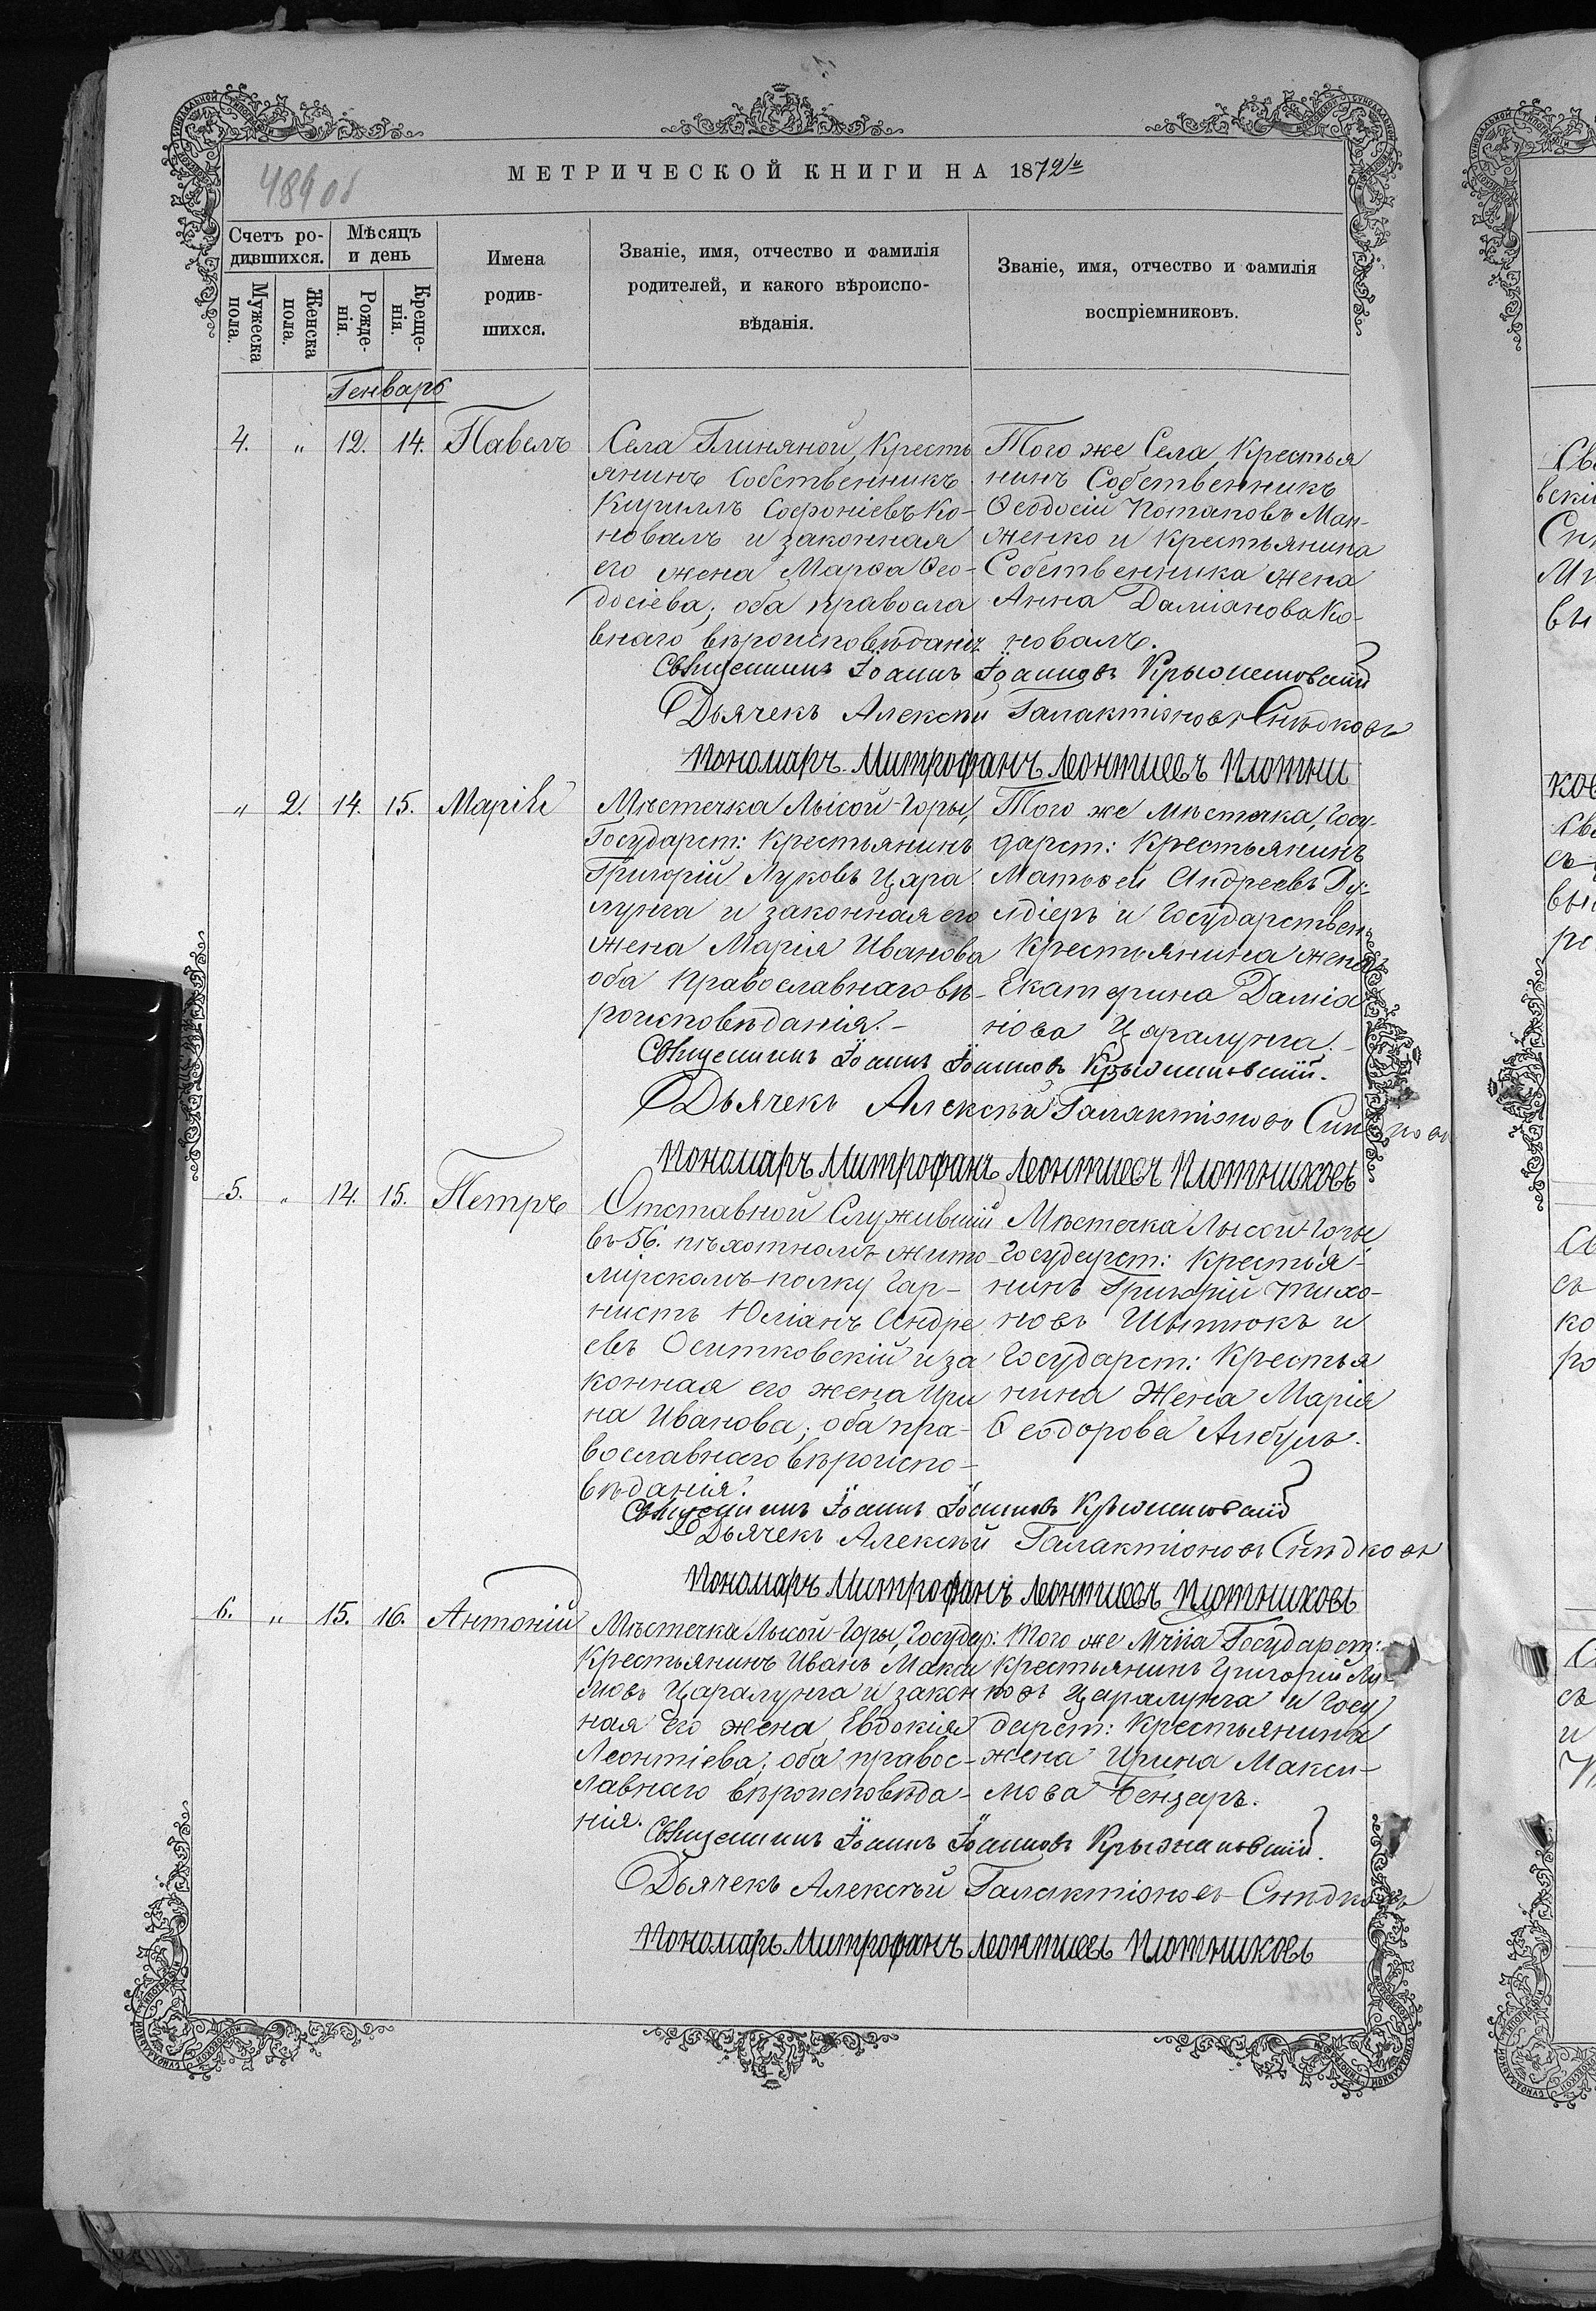 489 об
МЕТРИЧЕСКОЙ КНИГИ НА 1872й
Счетъ ро-
дившихся.
Мѣсяцъ
и день
Мужеска
пола.
Женска
пола.
Рожде-
нія.
Креще-
нія.
Имена
родив-
шихся.
Званіе, имя, отчество и фамилія
родителей, и какого вѣроиспо-
вѣданія.
Званіе, имя, отчество и фамилія
воспріемниковъ.
Генварь
4. " 12. 14. Павелъ
Села Глиняной, Кресть
янинъ Собственникъ
Кириллъ Софоніевъ Ко-
новалъ и законная
его жена Марѳа Ѳео-
досіева; оба правосла
внаго вѣроисповѣданія
Того же Села, Крестья
нинъ Собственникъ
Ѳеодосій Потаповъ Ман-
женко и Крестьянина
Собственника жена
Анна Даміанова Ко-
новалъ.
Священникъ Іоаннъ Іоанновъ Крыжановскій
Дьячекъ Алексѣй Галактіоновъ Снѣдковъ
Пономарь Митрофанъ Леонтиевъ Плотни
" 2. 14. 15. Марія
Мѣстечка Лысой-Горы,
Государст: Крестьянинъ
Григорій Луковъ Цара
лунга и законная его
жена Марія Иванова
оба Православнаго вѣ-
роисповѣданія.-
Того же Мѣстечка, Госу-
дарст: Крестьянинъ
Матѳей Андреевъ
и Государствен:
Крестьянина жена
Екатерина Даміа
нова Царалунга.-
Священникъ Іоаннъ Іоанновъ Крыжановскій.
Дьячекъ Алексѣй Галактіоновъ
Пономарь Митрофанъ Леонтиевъ Плотниковъ
5. " 14. 15. Петръ
Отставной Служившій
въ 56. пѣхотномъ Жито-
мірскомъ полку Гар-
нистъ Юліанъ Андре
евъ Оситковскій и за
конная его жена Ири
на Иванова; оба пра-
вославнаго вѣроиспо-
вѣданія.
Мѣстечка Лысой-Горы,
Государст: Крестья-
нинъ Григорій Тихо-
новъ и
Государст: Крестья
нина Жена Марія
Ѳеодорова Албулъ.
Священникъ Іоаннъ Іоанновъ Крыжановскій
Дьячекъ Алексѣй Галактіоновъ Снѣдковъ
Пономарь Митрофанъ Леонтиевъ Плотниковъ
6. " 15. 16. Антоній
Мѣстечка Лысой-Горы, Государ:
Крестьянинъ Иванъ Макси
мовъ Царалунга и закон
ная его жена Евдокія
Леонтіева; оба правос-
лавнаго вѣроисповѣда-
нія.
Того же Государст:
Крестьянинъ Григорій Лу-
ковъ Царалунга и Госу
дарст: Крестьянина
жена Ирина Макси-
мова Бензаръ.
Священникъ Іоаннъ Іоанновъ Крыжановскій.
Дьячекъ Алексѣй Галактіоновъ Снѣдковъ
Пономарь Митрофанъ Леонтиевъ Плотниковъ